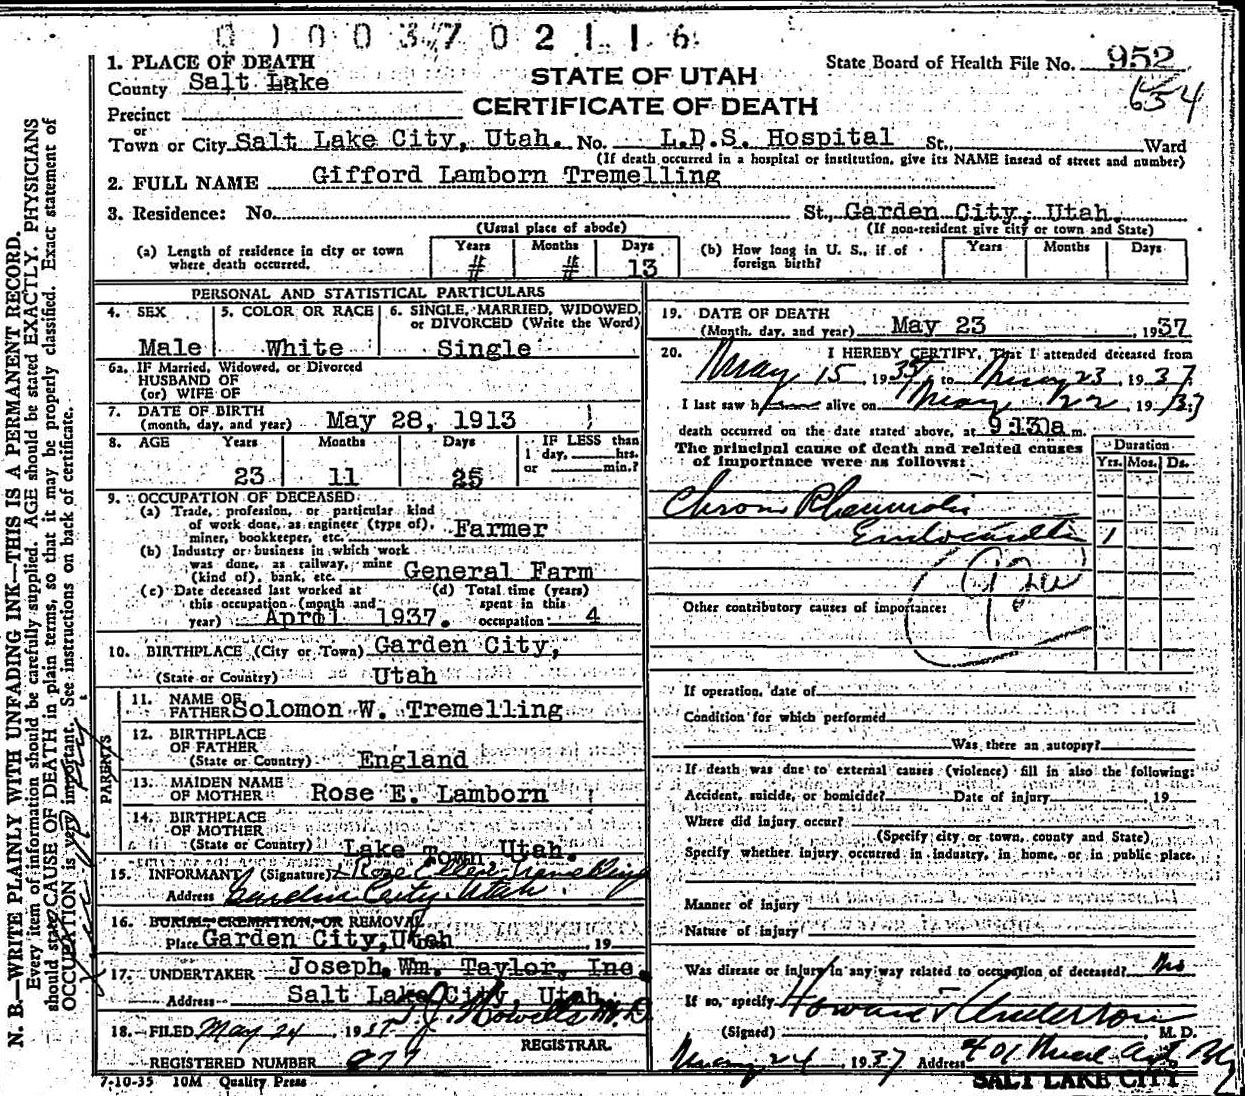 01003702116
1. PLACE OF DEATH
County Salt Lake
STATE OF UTAH
CERTIFICATE OF DEATH
State Board of Health File No. 952
654
Precinct
or
Town or City Salt Lake City, Utah. No. L.D.S. Hospital St., Ward
(If death occurred in a hospital or institution, give its NAME instead of street and number)
2. FULL NAME Gifford Lamborn Tremelling
3. Residence: No. St., Garden City, Utah.
(Usual place of abode) (If non-resident give city or town and State)
(a) Length of residence in city or town where death occurred. Years # Months # Days 13
(b) How long in U. S., if of foreign birth? Years Months Days
PERSONAL AND STATISTICAL PARTICULARS
4. SEX Male
5. COLOR OR RACE White
6. SINGLE, MARRIED, WIDOWED, or DIVORCED (Write the Word) Single
6a. IF Married, Widowed, or Divorced
HUSBAND OF
(or) WIFE OF
7. DATE OF BIRTH
(month, day, and year) May 28, 1913
8. AGE Years 23 Months 11 Days 25
IF LESS than
1 day, hrs.
or min.?
9. OCCUPATION OF DECEASED
(a) Trade, profession, or particular kind
of work done, as engineer (type of),
miner, bookkeeper, etc. Farmer
(b) Industry or business in which work
was done, as railway, mine
(kind of), bank, etc. General Farm
(c) Date deceased last worked at
this occupation (month and
year) April 1937.
(d) Total time (years)
spent in this
occupation 4
10. BIRTHPLACE (City or Town) Garden City,
(State or Country) Utah
PARENTS
11. NAME OF
FATHER Solomon W. Tremelling
12. BIRTHPLACE
OF FATHER
(State or Country) England
13. MAIDEN NAME
OF MOTHER Rose E. Lamborn
14. BIRTHPLACE
OF MOTHER
(State or Country) Lake Town, Utah.
15. INFORMANT (Signature) Rose Ellen Tremelling
Address Garden City, Utah
16. BURIAL, CREMATION, OR REMOVAL
Place Garden City, Utah 19
17. UNDERTAKER Joseph Wm. Taylor, Inc.
Address Salt Lake City, Utah.
18. FILED May 24 1937 T. J. Howells M.D.
REGISTRAR.
REGISTERED NUMBER 877
7-10-35 10M Quality Press
19. DATE OF DEATH
(Month, day, and year) May 23, 1937
20. I HEREBY CERTIFY, That I attended deceased from
May 15 1937, to May 23, 1937
I last saw h alive on May 22 1937
death occurred on the date stated above, at 9:13 a m.
The principal cause of death and related causes
of importance were as follows:
Duration
Yrs. Mos. Ds.
Chronic Rheumatic
Endocarditis 1
Other contributory causes of importance:
If operation, date of
Condition for which performed
Was there an autopsy?
If death was due to external causes (violence) fill in also the following:
Accident, suicide, or homicide? Date of injury 19
Where did injury occur?
(Specify city or town, county and State)
Specify whether injury occurred in industry, in home, or in public place.
Manner of injury
Nature of injury
Was disease or injury in any way related to occupation of deceased? No
If so, specify
(Signed) Howard T. Anderson M. D.
May 24, 1937 Address 401 Med Arts Bldg
SALT LAKE CITY
N. B.—WRITE PLAINLY WITH UNFADING INK—THIS IS A PERMANENT RECORD.
Every item of information should be carefully supplied. AGE should be stated EXACTLY. PHYSICIANS
should state CAUSE OF DEATH in plain terms, so that it may be properly classified. Exact statement of
OCCUPATION is very important. See instructions on back of certificate.